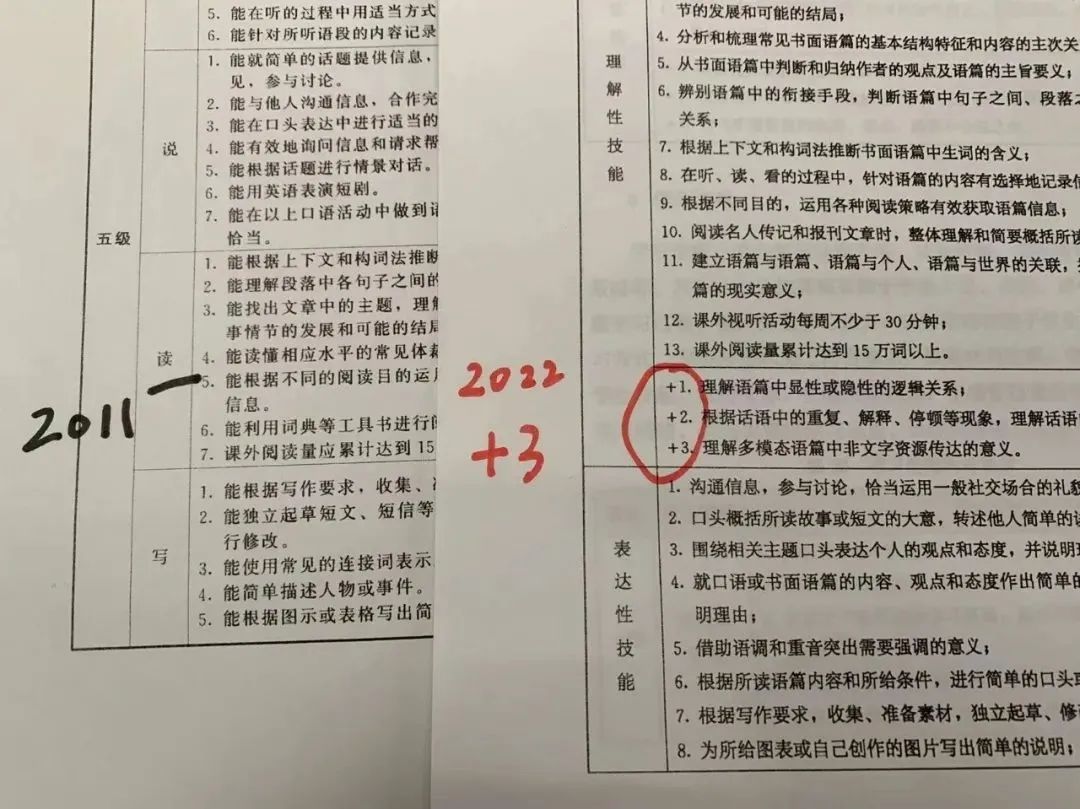 5. 能在听的过程中用适当方式
6. 能针对所听语段的内容记录
说
1. 能就简单的话题提供信息，
见，参与讨论。
2. 能与他人沟通信息，合作完
3. 能在口头表达中进行适当的
4. 能有效地询问信息和请求帮
5. 能根据话题进行情景对话。
6. 能用英语表演短剧。
7. 能在以上口语活动中做到语
恰当。
五级
读
1. 能根据上下文和构词法推断
2. 能理解段落中各句子之间的
3. 能找出文章中的主题，理解
事情节的发展和可能的结局
4. 能读懂相应水平的常见体裁
5. 能根据不同的阅读目的运用
信息。
6. 能利用词典等工具书进行阅
7. 课外阅读量应累计达到 15
2011
写
1. 能根据写作要求，收集、准
2. 能独立起草短文、短信等
行修改。
3. 能使用常见的连接词表示
4. 能简单描述人物或事件。
5. 能根据图示或表格写出简
2022
+3
理解性技能
节的发展和可能的结局；
4. 分析和梳理常见书面语篇的基本结构特征和内容的主次关
5. 从书面语篇中判断和归纳作者的观点及语篇的主旨要义；
6. 辨别语篇中的衔接手段，判断语篇中句子之间、段落之
关系；
7. 根据上下文和构词法推断书面语篇中生词的含义；
8. 在听、读、看的过程中，针对语篇的内容有选择地记录信
9. 根据不同目的，运用各种阅读策略有效获取语篇信息；
10. 阅读名人传记和报刊文章时，整体理解和简要概括所读
11. 建立语篇与语篇、语篇与个人、语篇与世界的关联，
篇的现实意义；
12. 课外视听活动每周不少于 30 分钟；
13. 课外阅读量累计达到 15 万词以上。
+1. 理解语篇中显性或隐性的逻辑关系；
+2. 根据话语中的重复、解释、停顿等现象，理解话语
+3. 理解多模态语篇中非文字资源传达的意义。
表达性技能
1. 沟通信息，参与讨论，恰当运用一般社交场合的礼貌
2. 口头概括所读故事或短文的大意，转述他人简单的谈
3. 围绕相关主题口头表达个人的观点和态度，并说明理
4. 就口语或书面语篇的内容、观点和态度作出简单的
明理由；
5. 借助语调和重音突出需要强调的意义；
6. 根据所读语篇内容和所给条件，进行简单的口头或
7. 根据写作要求，收集、准备素材，独立起草、修改
8. 为所给图表或自己创作的图片写出简单的说明；